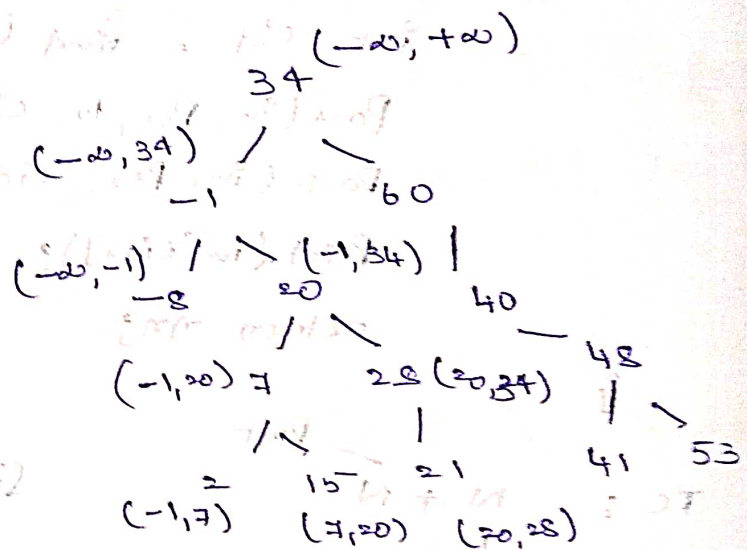 (-∞, +∞)
34
(-∞, 34)
-1 60
(-∞, -1) (-1, 34)
-8 20 40
48
(-1, 20) 7 28 (20, 34)
2 15 21 41 53
(-1, 7) (7, 20) (20, 28)